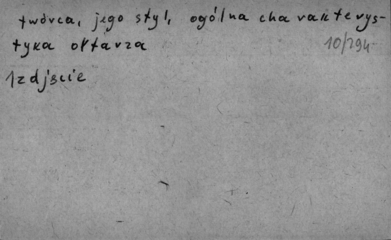 twórca, jego styl, ogólna charakterys-
tyka ołtarza
10/294
1 zdjęcie